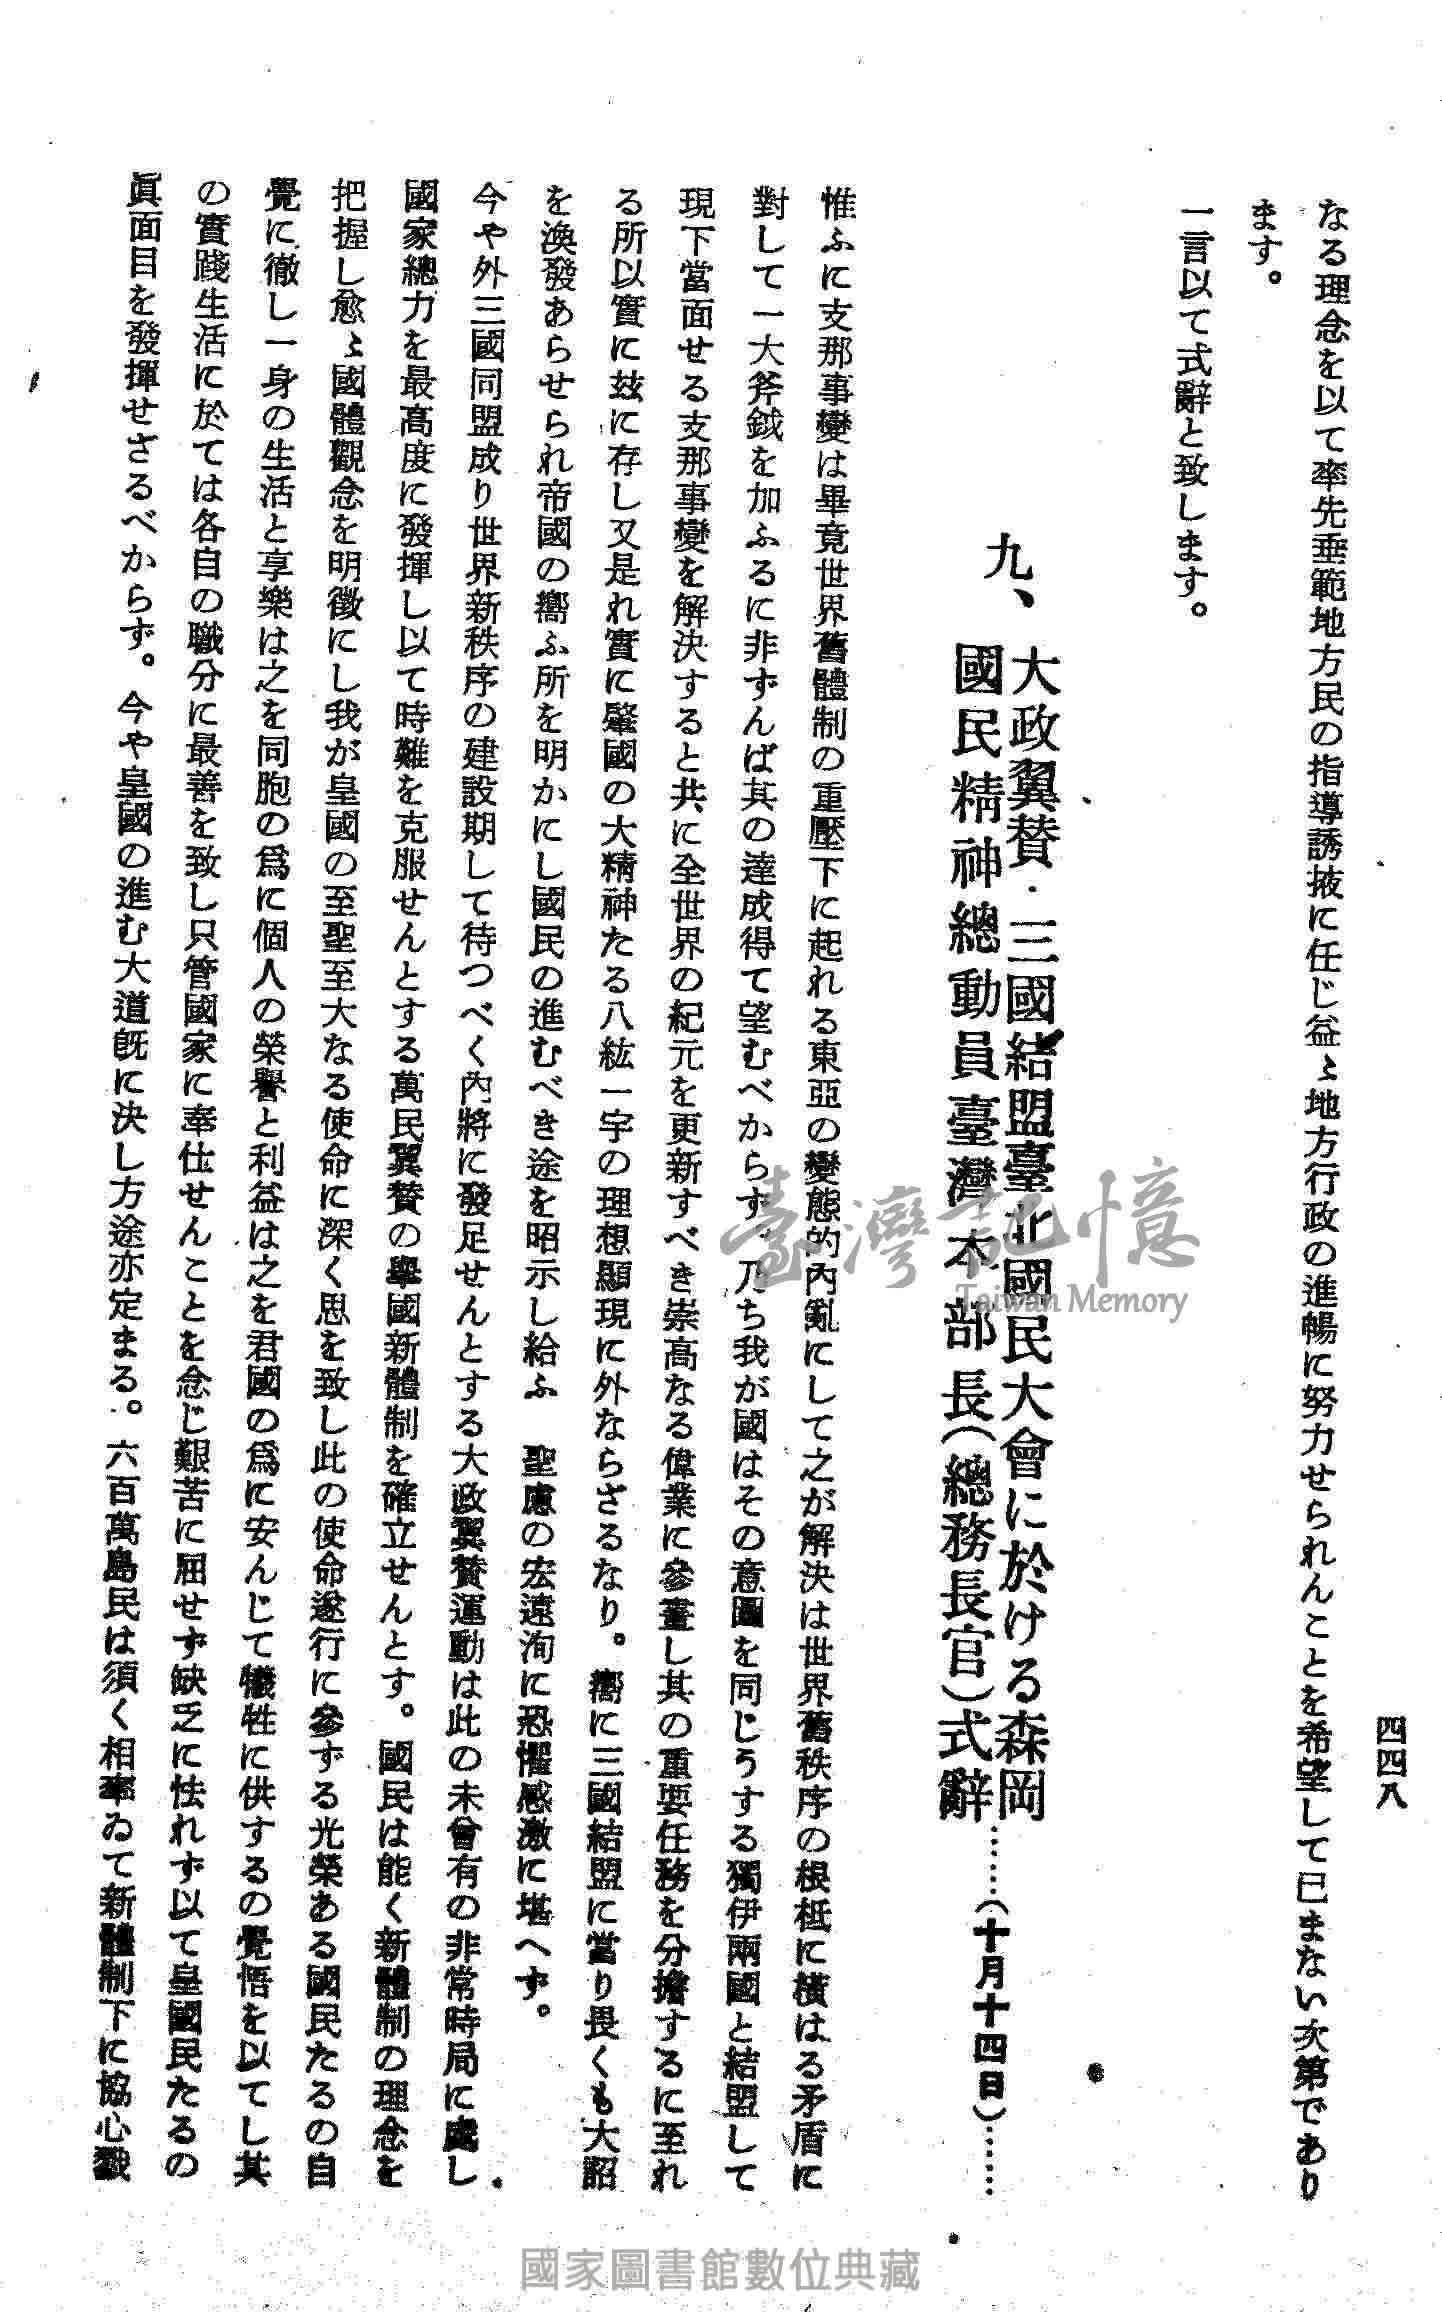 四四八
なる理念を以て率先垂範地方民の指導誘掖に任じ益〻地方行政の進暢に努力せられんことを希望して已まない次第であり
ます。
一言以て式辭と致します。
九、大政翼贊・三國結盟臺北國民大會に於ける森岡
國民精神總動員臺灣本部長(總務長官)式辭……(十月十四日)……
惟ふに支那事變は畢竟世界舊體制の重壓下に起れる東亞の變態的內亂にして之が解決は世界舊秩序の根柢に橫はる矛盾に
對して一大斧鉞を加ふるに非ずんば其の達成得て望むべからず。乃ち我が國はその意圖を同じうする獨伊兩國と結盟して
現下當面せる支那事變を解決すると共に全世界の紀元を更新すべき崇高なる偉業に參畫し其の重要任務を分擔するに至れ
る所以實に玆に存し又是れ實に肇國の大精神たる八紘一宇の理想顯現に外ならざるなり。嚮に三國結盟に當り畏くも大詔
を渙發あらせられ帝國の嚮ふ所を明かにし國民の進むべき途を昭示し給ふ　聖慮の宏遠洵に恐懼感激に堪へず。
今や外三國同盟成り世界新秩序の建設期して待つべく內將に發足せんとする大政翼贊運動は此の未曾有の非常時局に處し
國家總力を最高度に發揮し以て時難を克服せんとする萬民翼贊の擧國新體制を確立せんとす。國民は能く新體制の理念を
把握し愈〻國體觀念を明徵にし我が皇國の至聖至大なる使命に深く思を致し此の使命遂行に參ずる光榮ある國民たるの自
覺に徹し一身の生活と享樂は之を同胞の爲に個人の榮譽と利益は之を君國の爲に安んじて犧牲に供するの覺悟を以てし其
の實踐生活に於ては各自の職分に最善を致し只管國家に奉仕せんことを念じ艱苦に屈せず缺乏に怯れず以て皇國民たるの
眞面目を發揮せざるべからず。今や皇國の進む大道旣に決し方途亦定まる。六百萬島民は須く相率ゐて新體制下に協心戮
臺灣記憶
Taiwan Memory
國家圖書館數位典藏